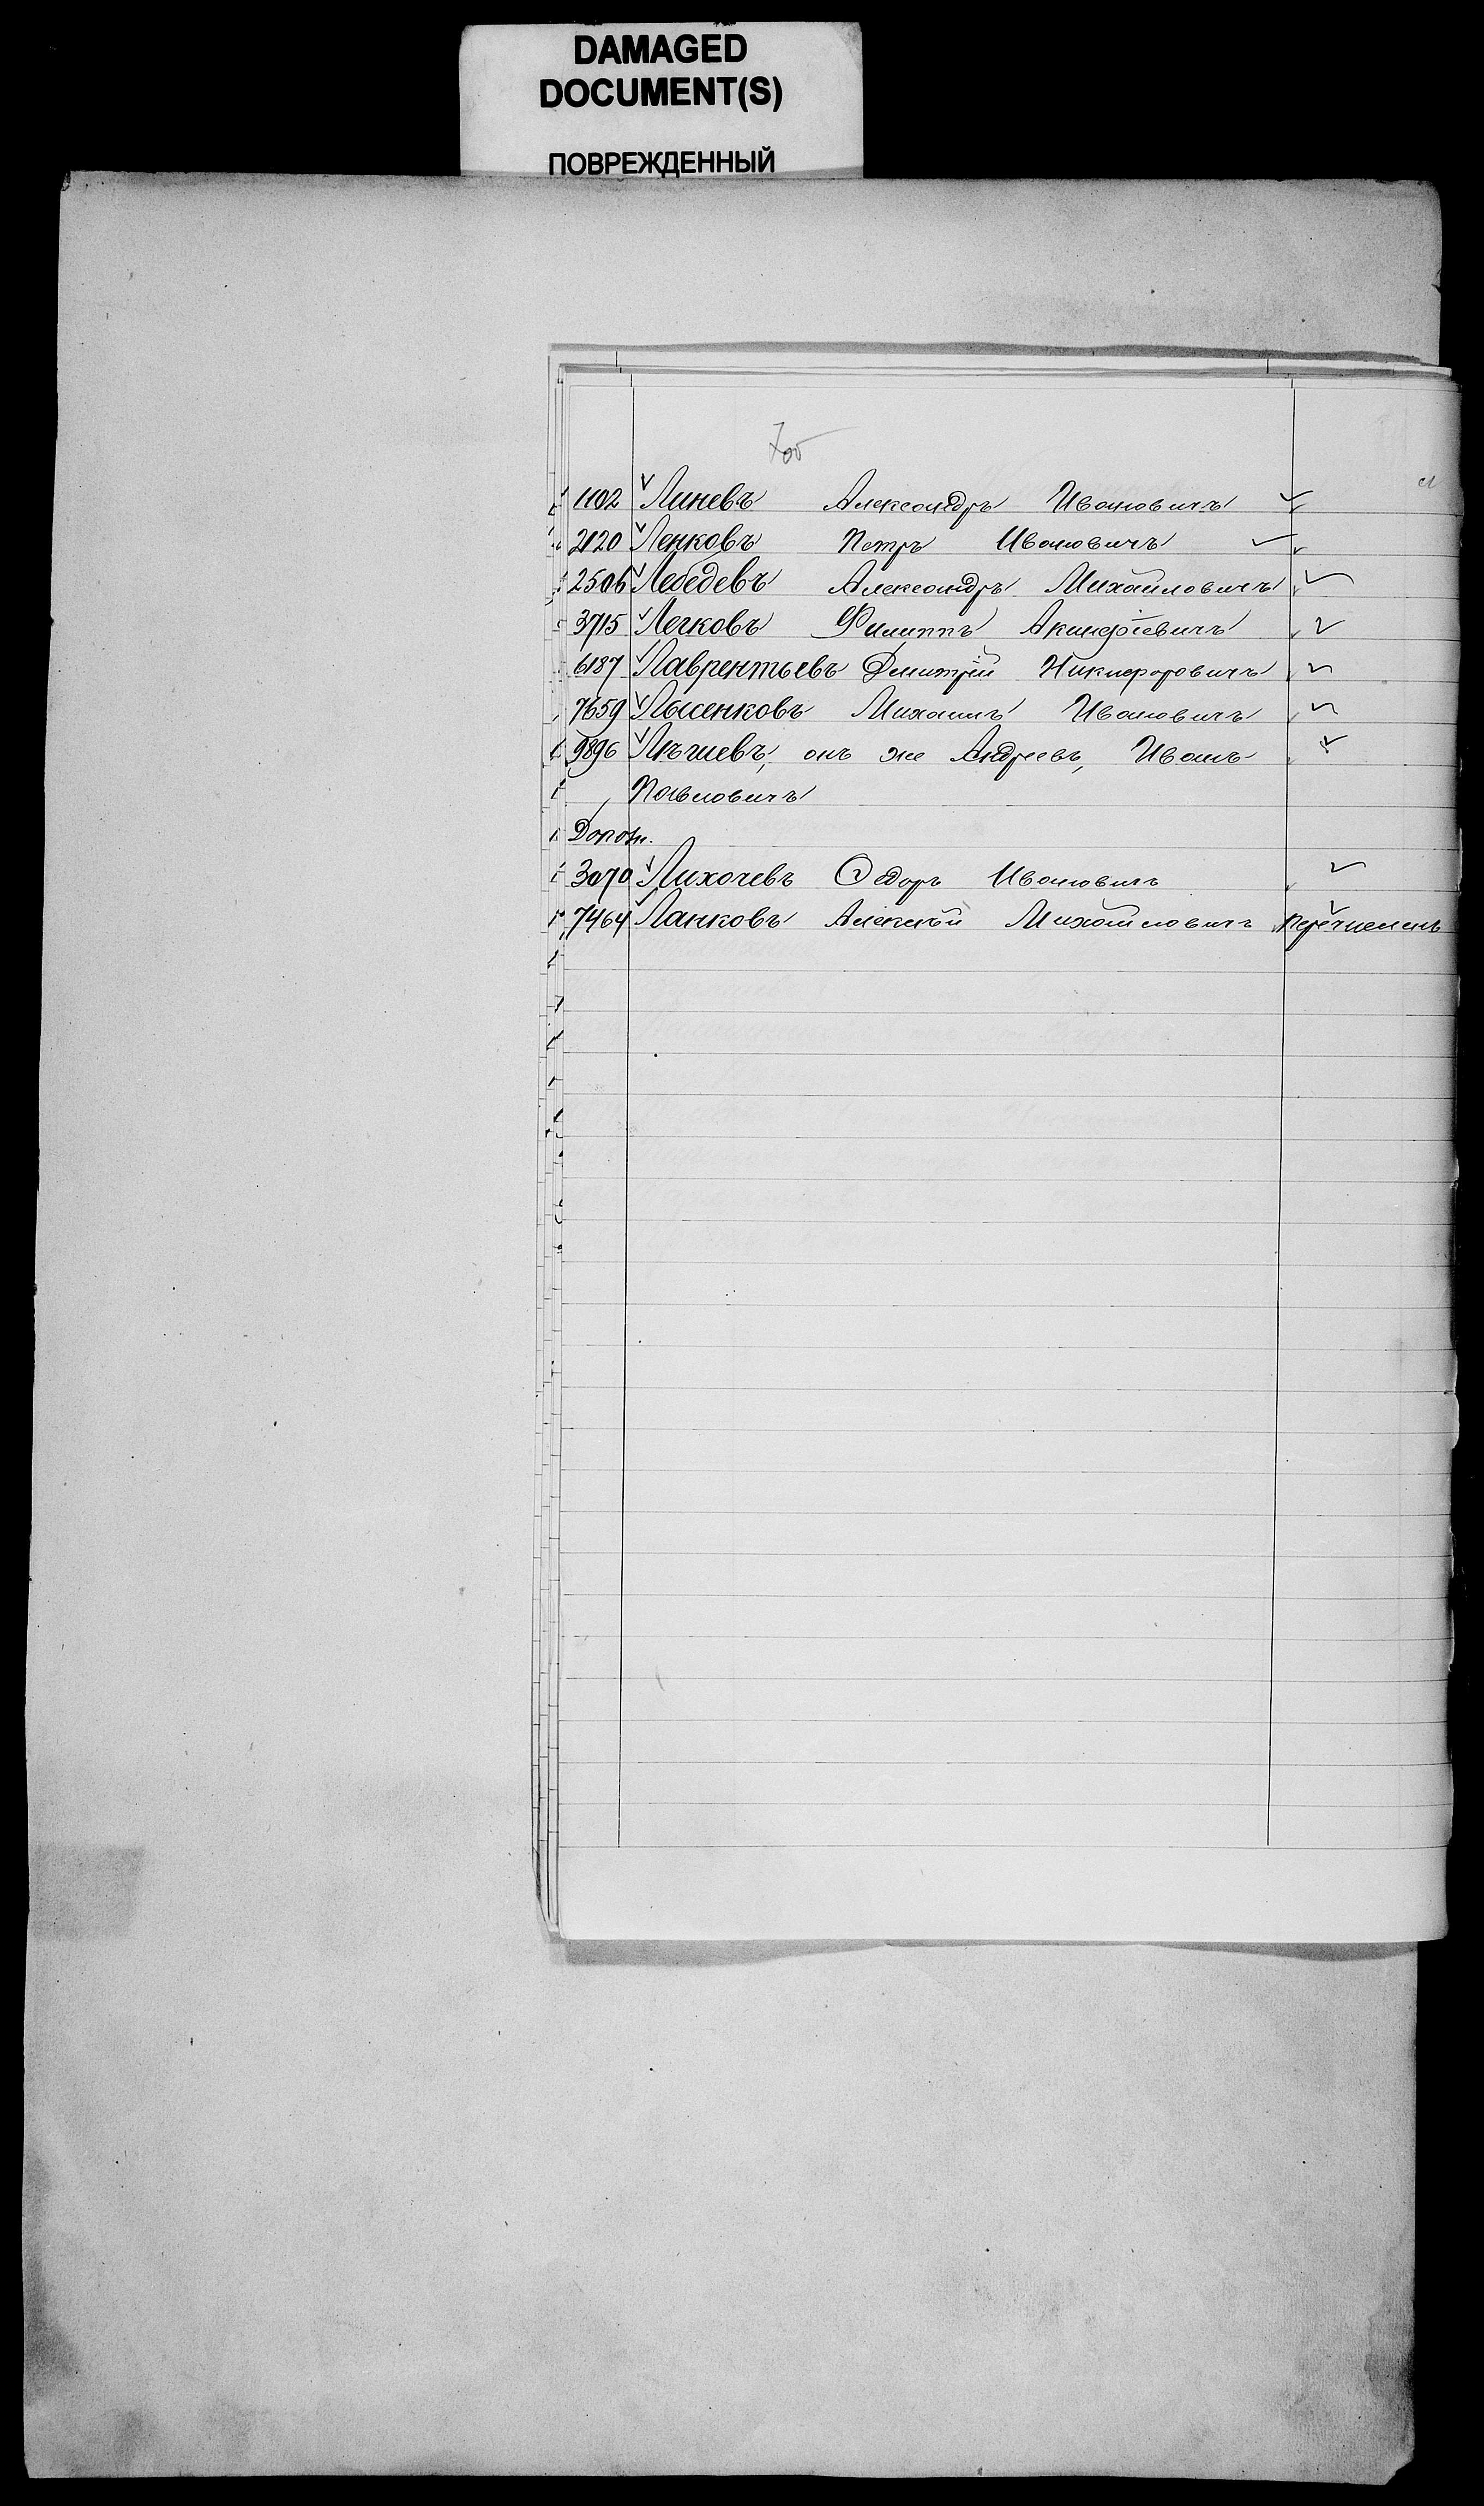 DAMAGED
DOCUMENT(S)
ПОВРЕЖДЕННЫЙ
1102 Линевъ Александръ Ивановичъ
2120 Ленковъ Петръ Ивановичъ
2506 Лебедевъ Александръ Михайловичъ
3715 Легковъ Филиппъ Акинфіевичъ
6187 Лаврентьевъ Дмитрій Никифоровичъ
7659 Лысенковъ Михаилъ Ивановичъ
9896 онъ же Андреевъ, Иванъ
Павловичъ
3070 Лихочевъ Ѳедоръ Ивановичъ
7464 Ланковъ Алексѣй Михайловичъ